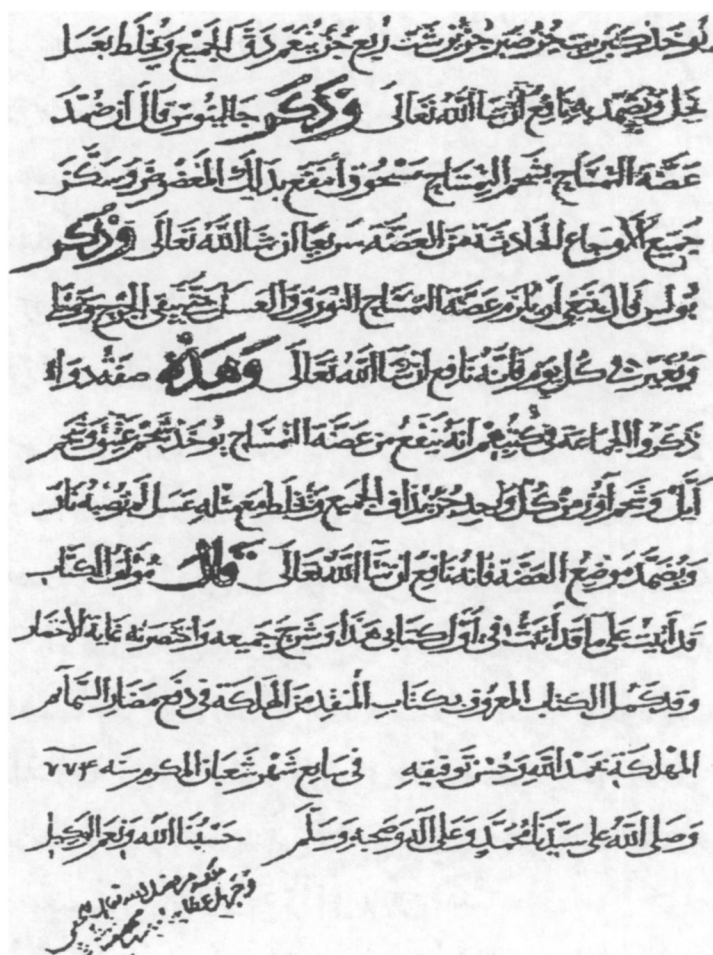 يوخذ كبريت جزو صبر جزو شث ربع جزو ينعم دق الجميع ويخلط بعسل
نحل ويضمد به نافع ان شا الله تعالى وذكر جالينوس قال ان ضمد
عضة التمساح بشحم التمساح مسحوق انتفع بذلك المعضوض وسكن
جميع الاوجاع الحادثة من العضة سريعا ان شا الله تعالى وذكر
بولس قال ينبغي ان يلزم عضة التمساح النورو والعسل حتى
ويغير في كل يوم فانه نافع ان شا الله تعالى وهذه صفة دواء
ذكروا الجماعة في كتبهم انه ينفع من عضة التمساح يوخذ شحم عتيق وشحم
ايل وشحم اوز من كل واحد جزو يذاف الجميع ويخلط مع مثله عسل لم تصبه نار
ويضمد موضع العضة فانه نافع ان شا الله تعالى قال مؤلف الكتاب
قد اتيت على ما قد اثبت في اول كتابي هذا وشرح جميعه واختصرته غاية الاختصار
وقد كمل الكتاب المعروف بكتاب المنقذ من الهلكة في دفع مضار السمائم
المهلكة بحمد الله وحسن توفيقه في سابع شهر شعبان المكرم سنه ٧٧۴
وصلى الله على سيدنا محمد وعلى اله وصحبه وسلم حسبنا الله ونعم الوكيل